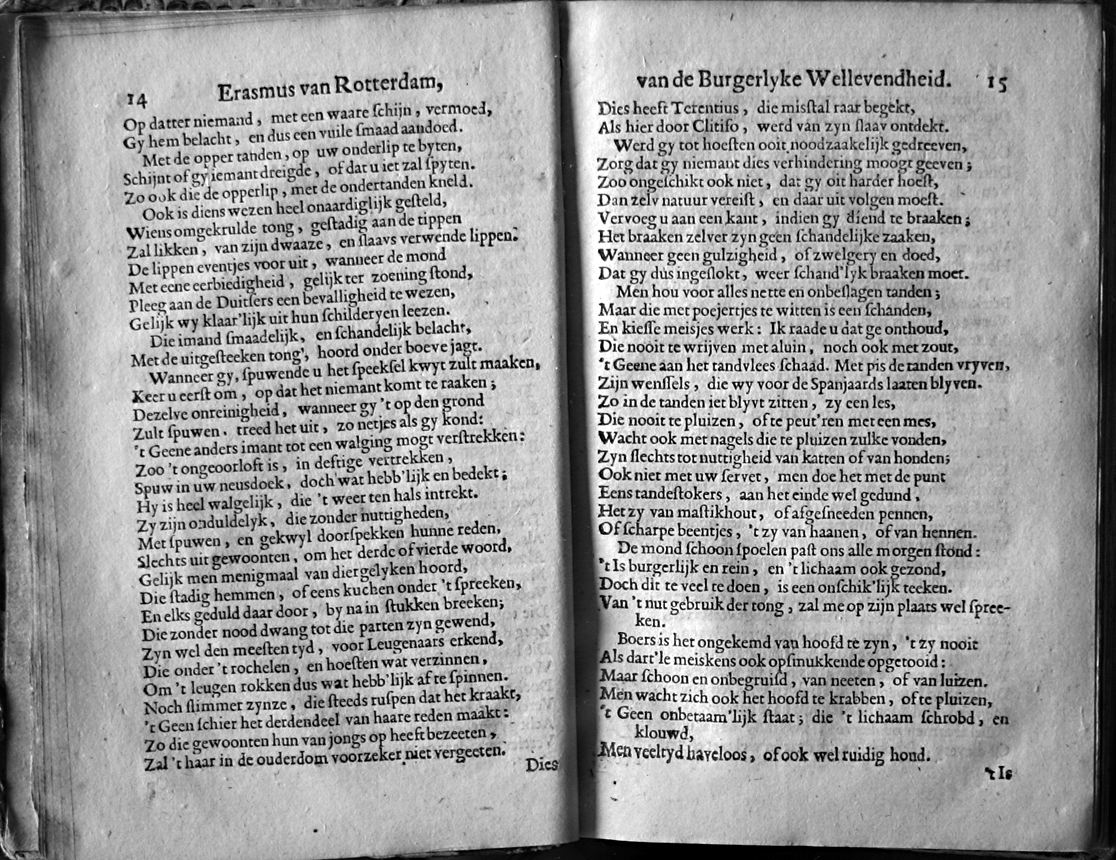 14 Erasmus van Rotterdam,
Op datter niemand, met een waare ſchijn, vermoed,
Gy hem belacht, en dus een vuile ſmaad aandoed.
Met de opper tanden, op uw onderlip te byten,
Schijnt of gy iemant dreigde, of dat u iet zal ſpyten.
Zo ook die de opperlip, met de ondertanden kneld.
Ook is diens wezen heel onaardiglijk geſteld,
Wiens omgekrulde tong, geſtadig aan de tippen
Zal likken, van zijn dwaaze, en ſlaavs verwende lippen.
De lippen eventjes voor uit, wanneer de mond
Met eene eerbiedigheid, gelijk ter zoening ſtond,
Pleeg aan de Duitſers een bevalligheid te wezen,
Gelijk wy klaar'lijk uit hun ſchilderyen leezen.
Die imand ſmaadelijk, en ſchandelijk belacht,
Met de uitgeſteeken tong', hoord onder boeve jagt.
Wanneer gy, ſpuwende u het ſpeekſel kwyt zult maaken,
Keer u eerſt om, op dat het niemant komt te raaken;
Dezelve onreinigheid, wanneer gy 't op den grond
Zult ſpuwen. treed het uit, zo netjes als gy kond:
't Geene anders imant tot een walging mogt verſtrekken:
Zoo 't ongeoorloft is, in deftige vertrekken,
Spuw in uw neusdoek, doch wat hebb'lijk en bedekt;
Hy is heel walgelijk, die 't weer ten hals intrekt.
Zy zijn onduldelyk, die zonder nuttigheden,
Met ſpuwen, en gekwyl doorſpekken hunne reden,
Slechts uit gewoonten, om het derde of vierde woord,
Gelijk men menigmaal van diergelyken hoord,
Die ſtadig hemmen, of eens kuchen onder 't ſpreeken,
En elks geduld daar door, by na in ſtukken breeken;
Die zonder nood dwang tot die parten zyn gewend,
Zyn wel den meeſten tyd, voor Leugenaars erkend,
Die onder 't rochelen, en hoeſten wat verzinnen,
Om 't leugen rokken dus wat hebb'lijk af te ſpinnen.
Noch ſlimmer zynze, die ſteeds ruſpen dat het kraakt,
't Geen ſchier het derdendeel van haare reden maakt:
Zo die gewoonten hun van jongs op heeft bezeeten,
Zal 't haar in de ouderdom voorzeker niet vergeeten.
Dies
van de Burgerlyke Wellevendheid. 15
Dies heeft Terentius, die misſtal raar begekt,
Als hier door Clitifo, werd van zyn ſlaav ontdekt.
Werd gy tot hoeſten ooit noodzaakelijk gedreeven,
Zorg dat gy niemant dies verhindering moogt geeven;
Zoo ongeſchikt ook niet, dat gy oit harder hoeſt,
Dan zelv natuur vereiſt, en daar uit volgen moeſt.
Vervoeg u aan een kant, indien gy diend te braaken;
Het braaken zelver zyn geen ſchandelijke zaaken,
Wanneer geen gulzigheid, of zwelgery en doed,
Dat gy dus ingeſlokt, weer ſchand'lyk braaken moet.
Men hou voor alles nette en onbeſlagen tanden;
Maar die met poejertjes te witten is een ſchanden,
En kieſſe meisjes werk: Ik raade u dat ge onthoud,
Die nooit te wrijven met aluin, noch ook met zout,
't Geene aan het tandvlees ſchaad. Met pis de tanden vryven,
Zijn wenſſels, die wy voor de Spanjaards laaten blyven.
Zo in de tanden iet blyvt zitten, zy een les,
Die nooit te pluizen, of te peut'ren met een mes,
Wacht ook met nagels die te pluizen zulke vonden,
Zyn ſlechts tot nuttigheid van katten of van honden;
Ook niet met uw ſervet, men doe het met de punt
Eens tandeſtokers, aan het einde wel gedund,
Het zy van maſtikhout, of afgeſneeden pennen,
Of ſcharpe beentjes, 't zy van haanen, of van hennen.
De mond ſchoon ſpoelen paſt ons alle morgen ſtond:
't Is burgerlijk en rein, en 't lichaam ook gezond,
Doch dit te veel te doen, is een onſchik'lijk teeken.
Van 't nut gebruik der tong, zal me op zijn plaats wel ſpree-
ken.
Boers is het ongekemd van hoofd te zyn, 't zy nooit
Als dart'le meiskens ook opſmukkende opgetooid:
Maar ſchoon en onbegruiſd, van neeten, of van luizen.
Men wacht zich ook het hoofd te krabben, of te pluizen,
't Geen onbetaam'lijk ſtaat; die 't lichaam ſchrobd, en
klouwd,
Men veeltyd haveloos, of ook wel ruidig hond.
't Is